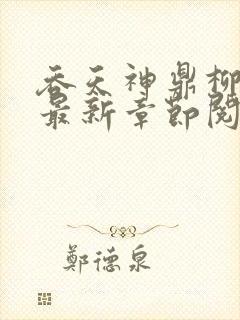 吞天神鼎柳
最新章节阅
鄭德泉